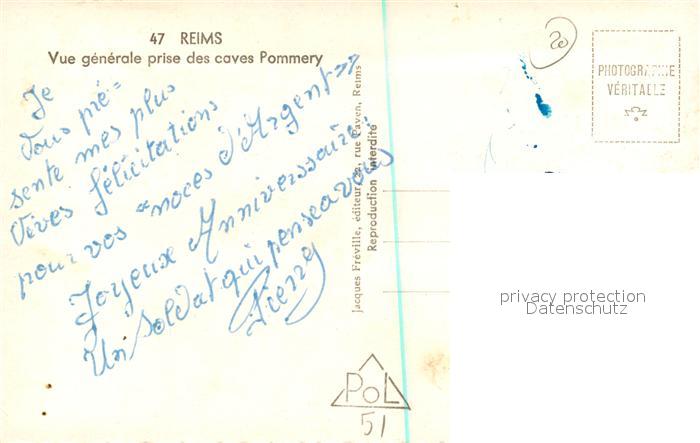 47 REIMS
Vue générale prise des caves Pommery
Je
vous pré=
sente mes plus
vives félicitations
pour vos "noces d'Argent"
Joyeux Anniversaire.
Un soldat qui pense a vous
Pierre
Jacques Fréville, éditeur, rue Payen, Reims
Reproduction interdite
20
PHOTOGRAPHIE
VÉRITABLE
privacy protection
Datenschutz
PoL
51